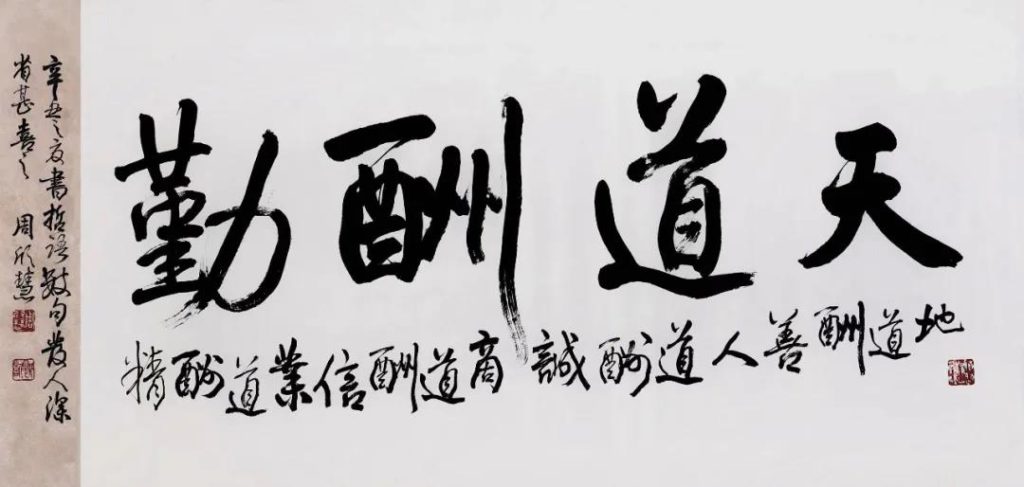 天道酬勤
地道酬善人道酬誠商道酬信業道酬精
辛丑之夏書哲語數句發人深
省甚喜之 周欣慧